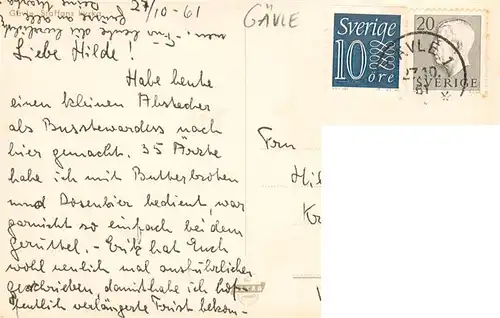 27/10-61
GÄVLE
Liebe Hilde!
Habe heute
einen kleinen Abstecher
als Busstewardess nach
hier gemacht. 35 Ärzte
habe ich mit Butterbroten
und Dosenbier bedient, war
garnicht so einfach bei dem
Gerüttel. - Fritz hat Euch
wohl neulich mal ausführlicher
geschrieben, damit habe ich hof-
fentlich verlängerte Frist bekom-
Sverige
10
öre
20
GÄVLE 1
27.10.
61
SVERIGE
Frau
Hil
Kr